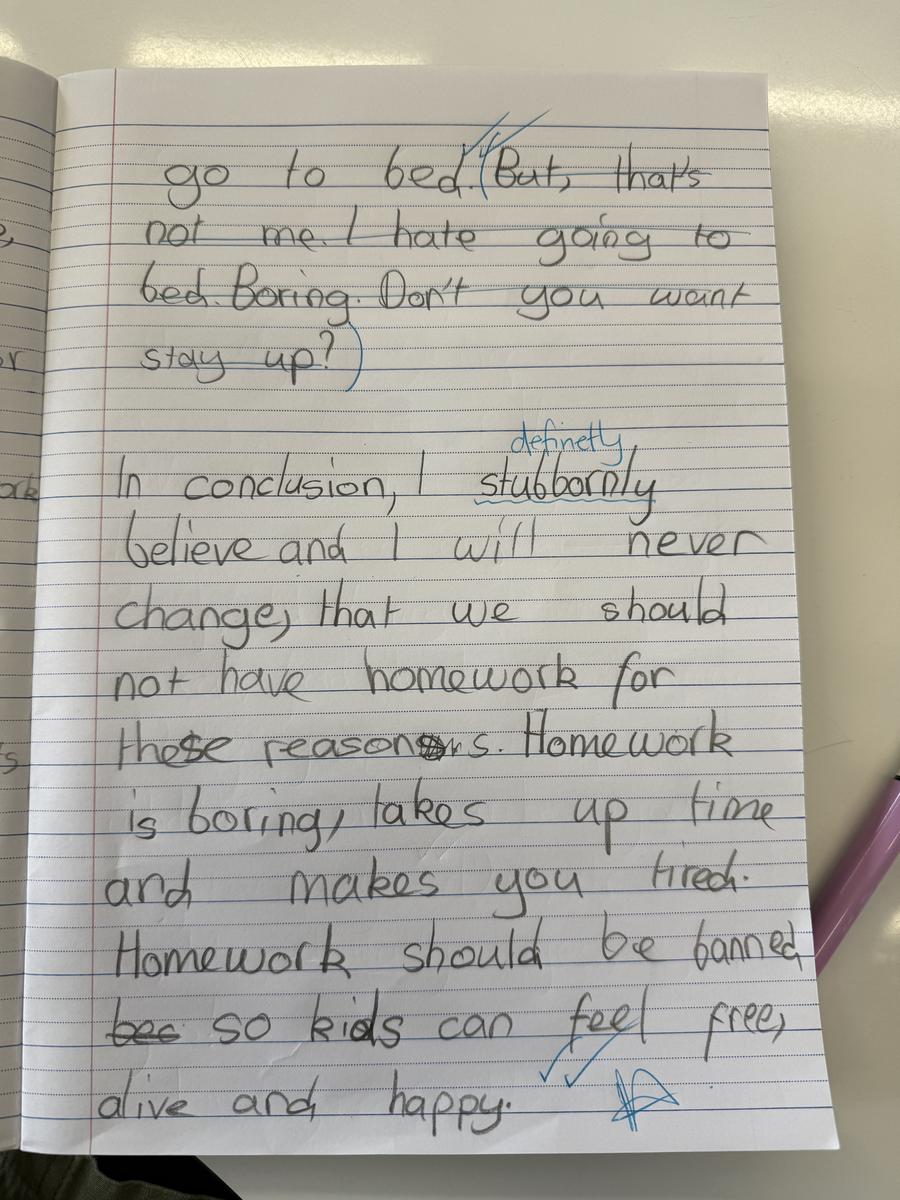 go to bed. (But, that's
not me. I hate going to
bed. Boring. Don't you want
stay up?)
definetly
In conclusion, I stubbornly
believe and I will never
change, that we should
not have homework for
these reasons. Homework
is boring, takes up time
and makes you tired.
Homework should be banned
bec so kids can feel free,
alive and happy.